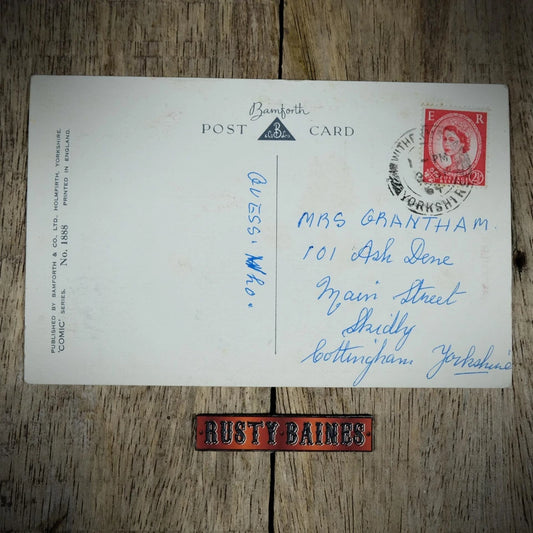 Bamforth
POST CARD
B
& Co Ltd
E R
2½
PM
YORKSHIRE
PUBLISHED BY BAMFORTH & CO., LTD., HOLMFIRTH, YORKSHIRE.
'COMIC' SERIES. No. 1888 PRINTED IN ENGLAND.
GUESS. Who.
MRS GRANTHAM.
101 Ash Dene
Main Street
Skidly
Cottingham Yorkshire
RUSTY BAINES